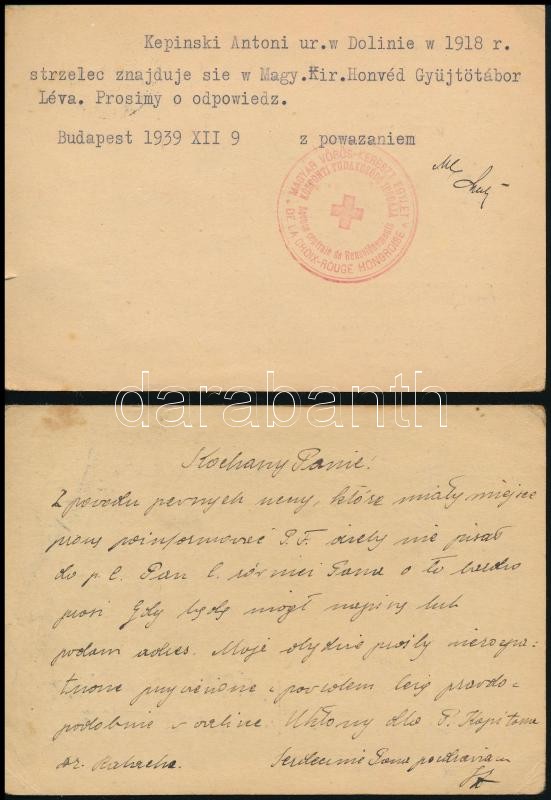 Kepinski Antoni ur.w Dolinie w 1918 r.
strzelec znajduje sie w Magy.Kir.Honvéd Gyüjtötábor
Léva. Prosimy o odpowiedz.
Budapest 1939 XII 9 z powazaniem
MAGYAR VÖRÖS-KERESZT EGYLET
KÖZPONTI TUDAKOZÓDÓ IRODÁJA
Agence centrale de Renseignements
DE LA CROIX-ROUGE HONGROISE
darabanth
Kochany Panie!
Z powodu pewnych rzeczy, które miały miejsce
proszę poinformować P. F. żeby nie pisał
do p. C. Pan C. również Pana o to bardzo
prosi. Gdy będę mógł napiszę lub
podam adres. Moje obydwie prośby
i prawdo-
podobnie Ukłony dla P. Kapitana
Serdecznie Pana pozdrawiam